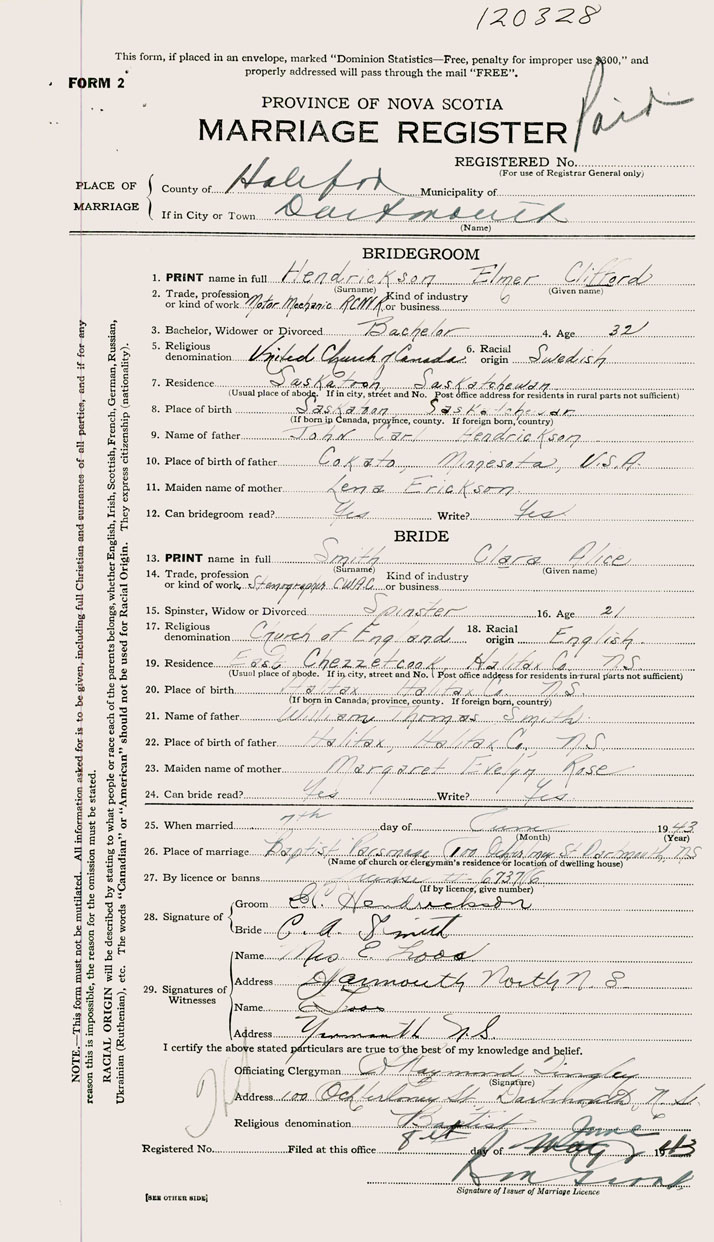 120328
This form, if placed in an envelope, marked "Dominion Statistics—Free, penalty for improper use $300," and
properly addressed will pass through the mail "FREE".
FORM 2
PROVINCE OF NOVA SCOTIA
MARRIAGE REGISTER Paid
REGISTERED No.
(For use of Registrar General only)
PLACE OF MARRIAGE
County of Halifax Municipality of
If in City or Town Dartmouth
(Name)
BRIDEGROOM
1. PRINT name in full Hendrickson Elmer Clifford
(Surname) (Given name)
2. Trade, profession or kind of work Motor Mechanic RCNVR Kind of industry or business
3. Bachelor, Widower or Divorced Bachelor 4. Age 32
5. Religious denomination United Church of Canada 6. Racial origin Swedish
7. Residence Saskatoon Saskatchewan
(Usual place of abode. If in city, street and No. Post office address for residents in rural parts not sufficient)
8. Place of birth Saskatoon Saskatchewan
(If born in Canada, province, county. If foreign born, country)
9. Name of father John Carl Hendrickson
10. Place of birth of father Cokato, Minnesota, U.S.A.
11. Maiden name of mother Lena Erickson
12. Can bridegroom read? Yes Write? Yes
BRIDE
13. PRINT name in full Smith Clara Alice
(Surname) (Given name)
14. Trade, profession or kind of work Stenographer CWAC Kind of industry or business
15. Spinster, Widow or Divorced Spinster 16. Age 21
17. Religious denomination Church of England 18. Racial origin English
19. Residence East Chezzetcook Halifax Co. N.S.
(Usual place of abode. If in city, street and No. Post office address for residents in rural parts not sufficient)
20. Place of birth Halifax Halifax Co. N.S.
(If born in Canada, province, county. If foreign born, country)
21. Name of father William Thomas Smith
22. Place of birth of father Halifax, Halifax Co., N.S.
23. Maiden name of mother Margaret Evelyn Rose
24. Can bride read? Yes Write? Yes
25. When married 7th day of June 1943
(Month) (Year)
26. Place of marriage Baptist Parsonage 100 St Dartmouth, NS
(Name of church or clergyman's residence or location of dwelling house)
27. By licence or banns 67376
(If by licence, give number)
28. Signature of
Groom Hendrickson
Bride C. A. Smith
29. Signatures of Witnesses
Name Mrs E.
Address Yarmouth North N.S
Name E
Address Yarmouth N.S.
I certify the above stated particulars are true to the best of my knowledge and belief.
Officiating Clergyman Raymond
(Signature)
Address 100 Ochterloney St. Dartmouth, N.S.
Religious denomination Baptist
Registered No. Filed at this office 8th day of May June 1943
Signature of Issuer of Marriage Licence
[SEE OTHER SIDE]
NOTE.—This form must not be mutilated. All information asked for is to be given, including full Christian and surnames of all parties, and if for any
reason this is impossible, the reason for the omission must be stated.
RACIAL ORIGIN will be described by stating to what people or race each of the parents belongs, whether English, Irish, Scottish, French, German, Russian,
Ukrainian (Ruthenian), etc. The words "Canadian" or "American" should not be used for Racial Origin. They express citizenship (nationality).